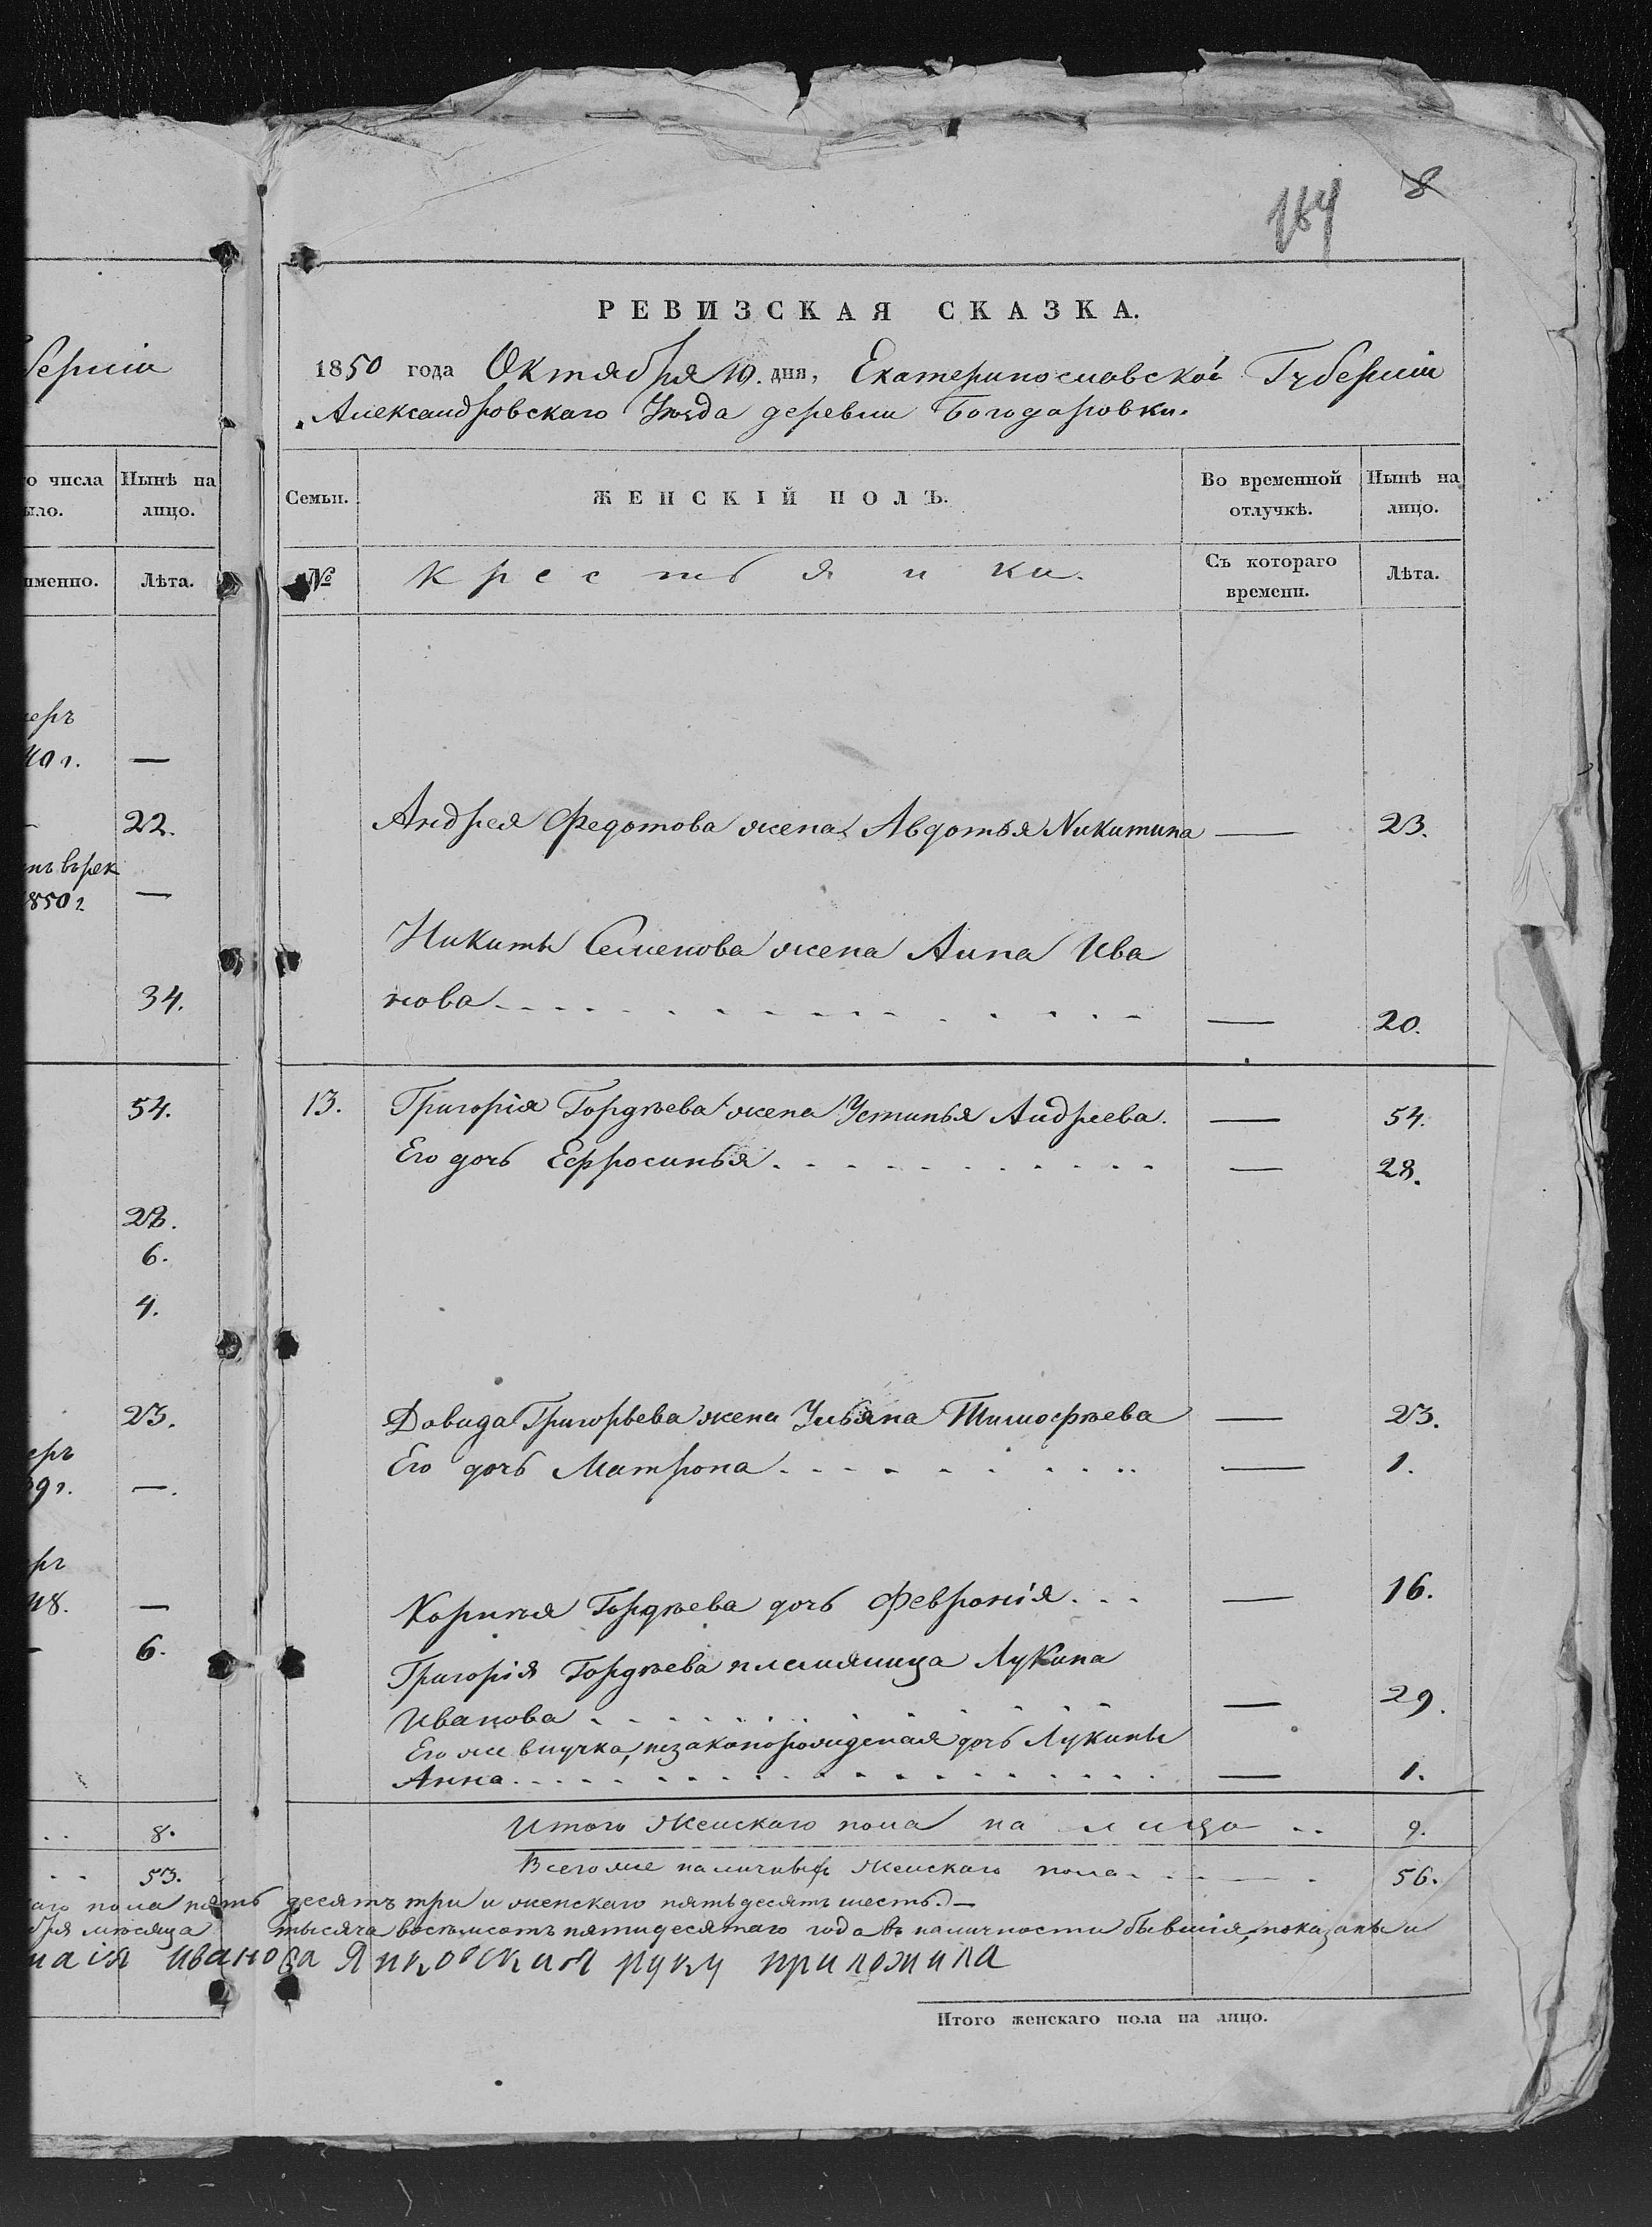 164 8
РЕВИЗСКАЯ СКАЗКА.
1850 года Октября 10. дня, Екатеринославской Губерніи
Александровскаго Уѣзда деревни Богодаровки.
Семьи. ЖЕНСКІЙ ПОЛЪ. Во временной отлучкѣ. Нынѣ на лицо.
№ Крестьянки. Съ котораго времени. Лѣта.
Андрея Федотова жена Авдотья Никитина — 23.
Никиты Семенова жена Анна Ива
нова — 20.
13. Григорія Гордѣева жена Устинья Андреева. — 54.
Его дочь Ефросинья — 28.
Довида Григорьева жена Ульяна Тимофѣева — 23.
Его дочь Матрона — 1.
Корнѣя Гордѣева дочь Февронія — 16.
Григорія Гордѣева племяница Лукина
Иванова — 29.
Его же внучка, незаконорожденная дочь Лукины
Анна — 1.
Итого Женскаго пола на лицо 9.
Всего же наличныхъ Женскаго пола 56.
аго пола пять десятъ три и женскаго пятьдесятъ шесть. —
бря мѣсяца тысяча восемьсотъ пятидесятаго года въ наличности бывшія, показаны и
Иванова Янковская руку приложила
Итого женскаго пола на лицо.
берніи
о числа Нынѣ на
ыло. лицо.
именно. Лѣта.
меръ
40 г. —
22.
850 г. —
34.
54.
28.
6.
4.
23.
еръ
39 г. —.
ръ
48. —
6.
8.
53.